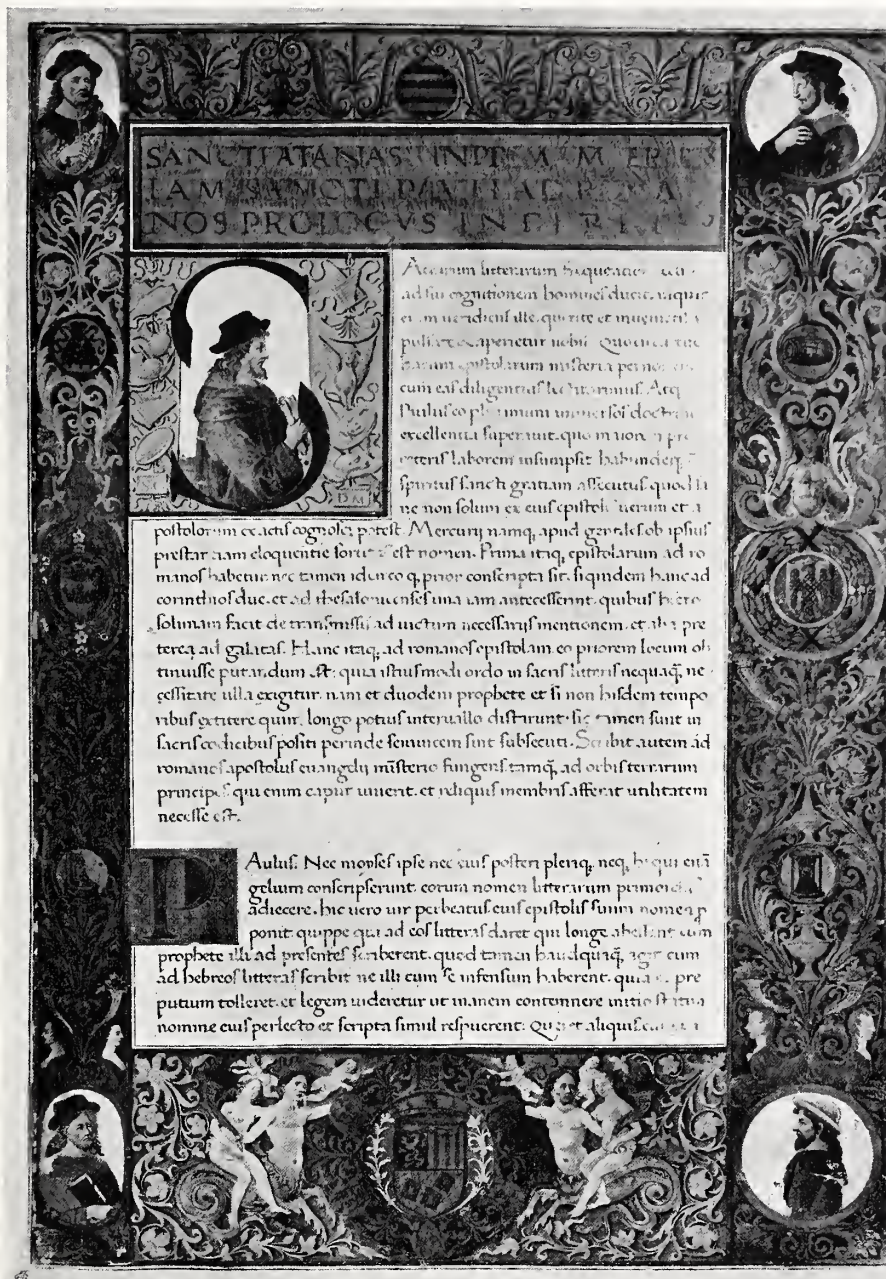 SANCTI ATANASII IN PRIMAM EPIS
LAM SANCTI PAVLI AD ROMA
NOS PROLOGVS INCIPIT
litterarum
ad sui cognitionem homines ducit
ille qui rite et
aperietur uobis
epistolarum misteria
cum eas diligentius
Paulus eo plurimum uniuersos doctrin
excellentia superauit quo in non
ceteris laborem insumpsit habundeq
spiritus sancti gratiam assecutus quod
ne non solum ex eius epistolis uerum et a
postolorum ex actis cognosci potest. Mercurij namq, apud gentiles ob ipsius
eloquentie est nomen. Prima itaq, epistolarum ad ro
manos habetur nec tamen idcirco q, prior conscripta sit. siquidem hanc ad
corinthios due. et ad thesalonicenses una iam antecesserint. quibus
solimam facit de transmissis ad uictum necessarijs mentionem. et pre
terea ad galatas. Hanc itaq, ad romanos epistolam eo priorem locum ob
tinuisse putandum est: quia istiusmodi ordo in sacris litteris nequaq, ne
cessitate ulla exigitur. nam et duodem prophete et si non hisdem tempo
ribus extitere quin longo potius interuallo distarunt. sic tamen sunt in
sacris codicibus positi perinde seinuicem sint subsecuti. Scribit autem ad
romanos apostolus euangelij misterio fungens tamq, ad orbis terrarum
principes qui enim caput uiuerit. et reliquis membris afferat utilitatem
necesse est.
PAulus. Nec moyses ipse nec eius posteri pleriq, neq, hi qui euā
gelium conscripserunt. eorum nomen litterarum
adiecere. hic uero uir perbeatus eius epistolis suum nomen p
ponit quippe qui ad eos litteras daret qui longe cum
prophete illi ad presentes scriberent. quod tamen haudquaq, agit cum
ad hebreos litteras scribit ne illi cum se infensum haberent. quia pre
putium tolleret. et legem uideretur ut inanem contemnere initio
nomine eius perlecto et scripta simul respuerent. aliquis
D M